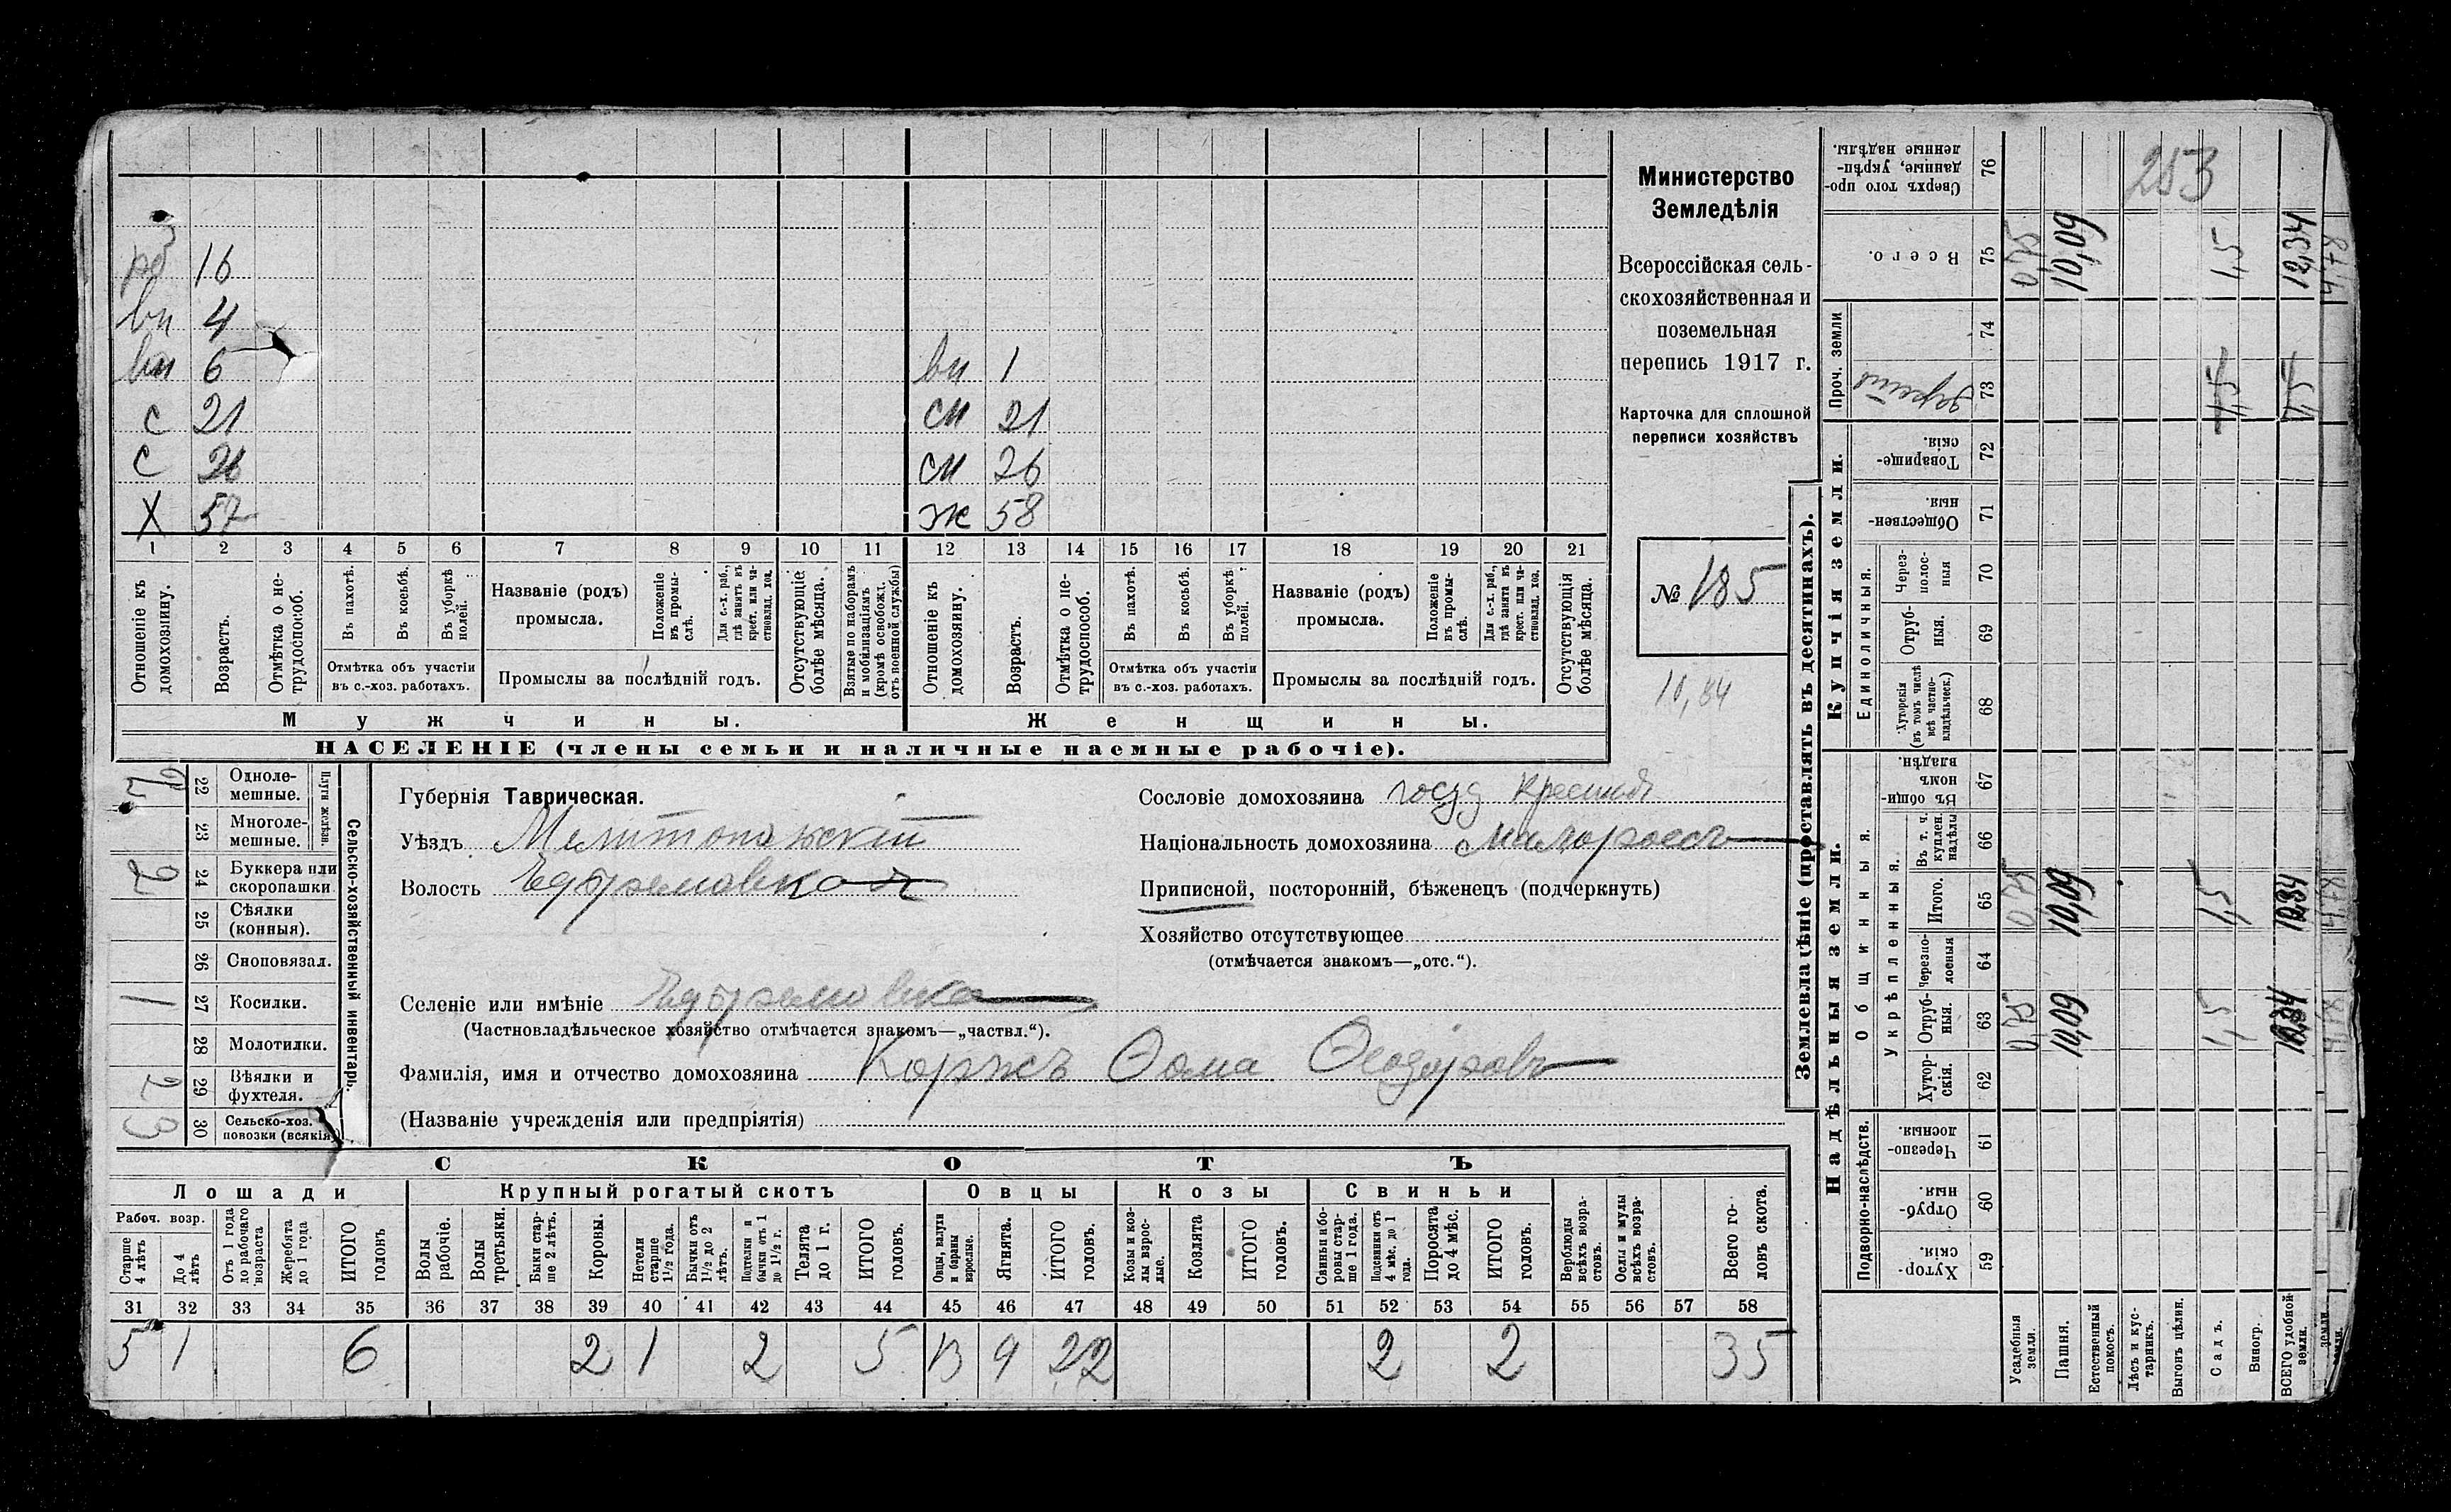 253
Министерство
Земледѣлія
Всероссійская сель-
скохозяйственная и
поземельная
перепись 1917 г.
Карточка для сплошной
переписи хозяйствъ
№ 185
10,84
рб 16
вн 4
вн 6 вн 1
с 21 сн 21
с 26 сн 26
х 57 ж 58
1 2 3 4 5 6 7 8 9 10 11 12 13 14 15 16 17 18 19 20 21
Отношеніе къ домохозяину.
Возрастъ.
Отмѣтка о не-трудоспособ.
Въ пахотѣ.
Въ косьбѣ.
Въ уборкѣ полей.
Отмѣтка объ участіи
въ с.-хоз. работахъ.
Названіе (родъ)
промысла.
Положеніе въ промы-слѣ.
Для с.-х. раб., гдѣ занятъ въ крест. или ча-стновлад. хоз.
Промыслы за послѣдній годъ.
Отсутствующіе болѣе мѣсяца.
Взятые по наборамъ и мобилизаціямъ (кромѣ освобожд. отъ военной службы)
Отношеніе къ домохозяину.
Возрастъ.
Отмѣтка о не-трудоспособ.
Въ пахотѣ.
Въ косьбѣ.
Въ уборкѣ полей.
Отмѣтка объ участіи
въ с.-хоз. работахъ.
Названіе (родъ)
промысла.
Положеніе въ промы-слѣ.
Для с.-х. раб., гдѣ занята въ крест. или ча-стновлад. хоз.
Промыслы за послѣдній годъ.
Отсутствующія болѣе мѣсяца.
Мужчины. Женщины.
НАСЕЛЕНІЕ (члены семьи и наличные наемные рабочіе).
Сельско-хозяйственный инвентарь.
Плуги желѣзн.
22 Одноле-мешные. 2
23 Многоле-мешные.
24 Буккера или скоропашки 2
25 Сѣялки (конныя).
26 Сноповязал.
27 Косилки. 1
28 Молотилки.
29 Вѣялки и фухтеля. 2
30 Сельско-хоз. повозки (всякія) 3
Губернія Таврическая.
Уѣздъ Мелитопольскій
Волость Ефремовская
Селеніе или имѣніе Ефремовка
(Частновладѣльческое хозяйство отмѣчается знакомъ—„частвл.“).
Фамилія, имя и отчество домохозяина Коржъ Ѳома Ѳеодоровъ
(Названіе учрежденія или предпріятія)
Сословіе домохозяина госуд крестьян
Національность домохозяина малороссъ
Приписной, посторонній, бѣженецъ (подчеркнуть)
Хозяйство отсутствующее
(отмѣчается знакомъ—„отс.“).
СКОТЪ
Лошади Крупный рогатый скотъ Овцы Козы Свиньи
Рабоч. возр.
Старше 4 лѣтъ
До 4 лѣтъ
Отъ 1 года до рабочаго возраста
Жеребята до 1 года
ИТОГО головъ
Волы рабочіе.
Волы третьяки.
Быки стар-ше 2 лѣтъ.
Коровы.
Нетели старше 1½ года.
Бычки отъ 1½ до 2 лѣтъ.
Подтелки и бычки отъ 1 до 1½ г.
Телята до 1 г.
ИТОГО головъ.
Овцы, валухи и бараны взрослые.
Ягнята.
ИТОГО головъ.
Козы и коз-лы взрос-лые.
Козлята
ИТОГО головъ.
Свиньи и бо-ровы стар-ше 1 года.
Подсвинки отъ 4 мѣс. до 1 года.
Поросята до 4 мѣс.
ИТОГО головъ.
Верблюды всѣхъ возра-стовъ.
Ослы и мулы всѣхъ возра-стовъ.
Всего го-ловъ скота.
31 32 33 34 35 36 37 38 39 40 41 42 43 44 45 46 47 48 49 50 51 52 53 54 55 56 57 58
5 1 6 2 1 2 5 13 9 22 2 2 35
Землевладѣніе (проставлять въ десятинахъ).
Надѣльныя земли. Купчія земли. Проч. земли
Подворно-наслѣдств.
Общинныя.
Укрѣпленныя.
Единоличныя.
59 Хутор-скія.
60 Отруб-ныя.
61 Черезпо-лосныя
62 Хутор-скія.
63 Отруб-ныя. 0,75 10,09 1,5
64 Черезпо-лосныя
65 Итого. 0,75 10,09 1,5
66 Въ т. ч. куплен. надѣлы
67 Въ общи-номъ владѣн.
68 Хуторскія (въ томъ числѣ всѣ частно-владѣльческ.)
69 Отруб-ныя.
70 Через-полос-ныя
71 Обществен-ныя.
72 Товарище-скія.
73
74
75 Всего. 0,75 10,09 1,5 12,34
76 Сверхъ того про-данные, укрѣп-ленные надѣлы.
Усадебныя земли.
Пашня.
Естественный покосъ.
Лѣсъ и кус-тарникъ.
Выгонъ цѣлин.
Садъ.
Виногр.
ВСЕГО удобной земли.